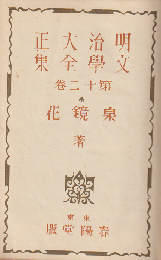 明治大正
文學全集
第十二卷
泉鏡花
著
東京
春陽堂版